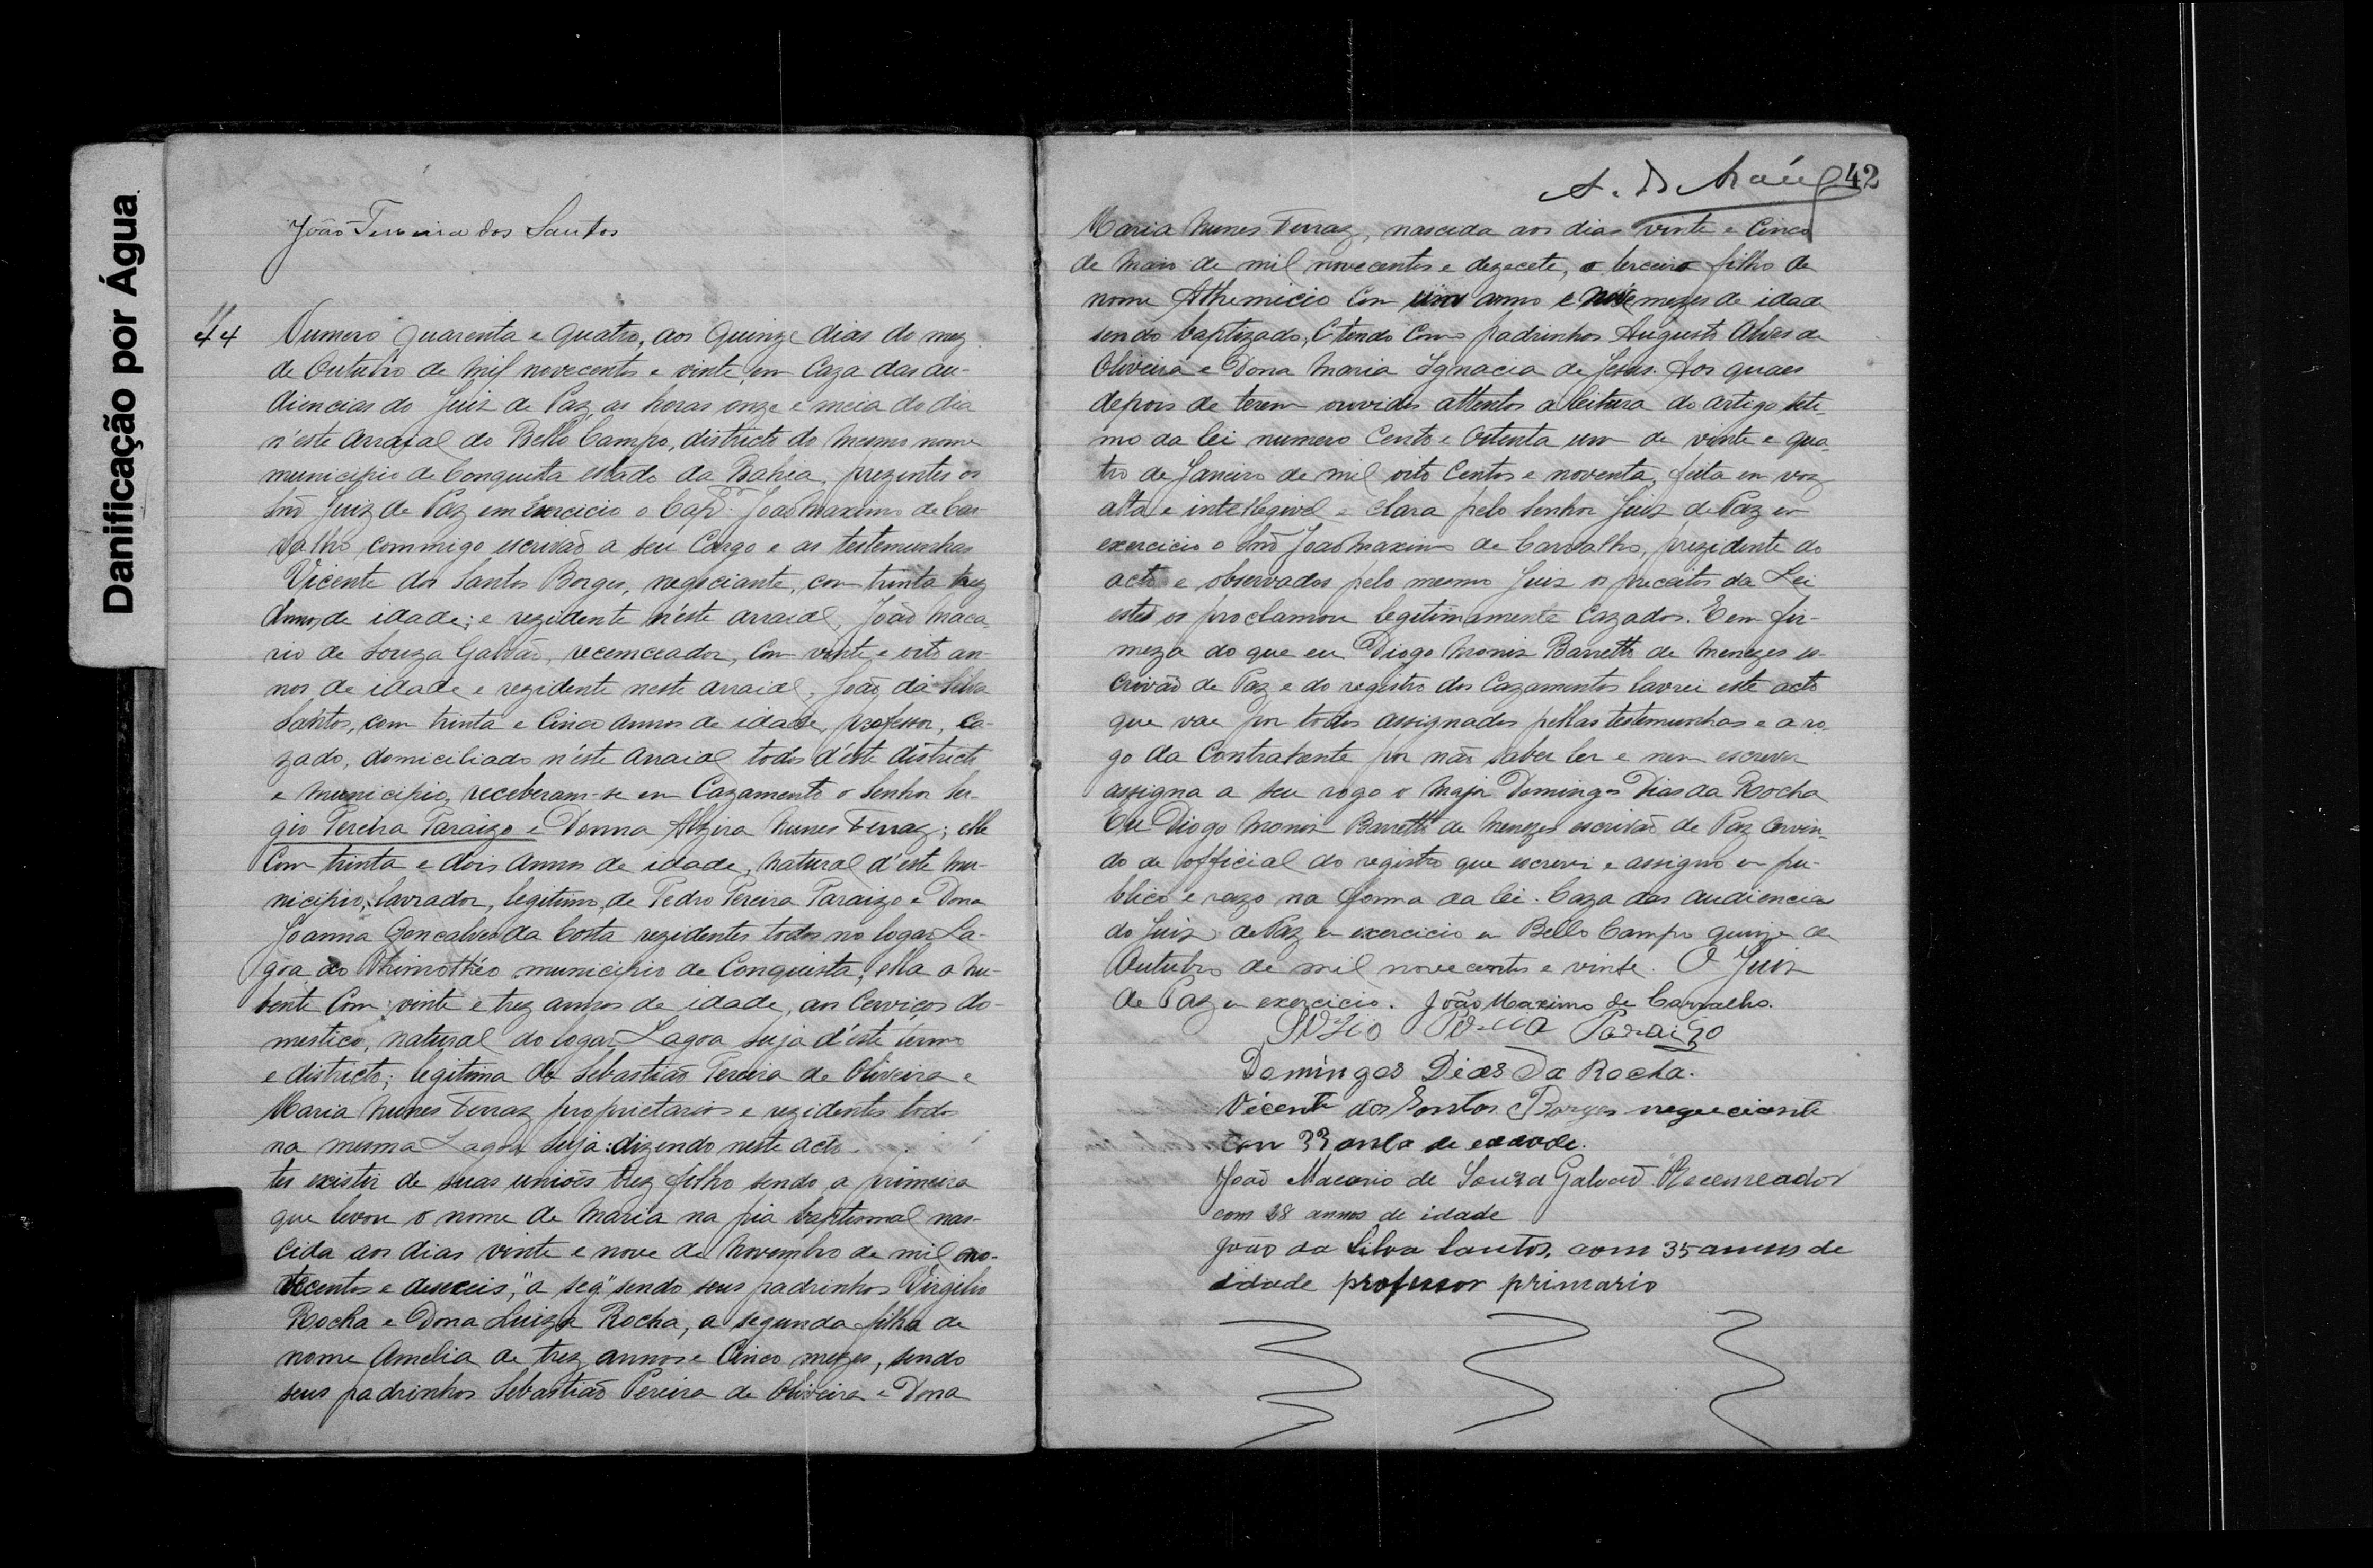 Danificação por Água
João Ferreira dos Santos
44 Numero quarenta e quatro, aos quinze dias do mez
de Outubro de mil novecentos e vinte, em Caza das au-
diencias do Juiz de Paz, as horas onze e meia do dia
n'este arraial do Bello Campo, districto do mesmo nome
municipio de Conquista estado da Bahia, prezentes os
Snr Juiz de Paz em Exercicio o Capm João Maximo de Car-
valho, commigo escrivão a seu Cargo e as testemunhas
Vicente dos Santos Borges, negociante, com trinta trez
Annos de idade; e rezidente n'este arraial, João Maca-
rio de Souza Galvão, recenceador, Com vinte e oito an-
nos de idade e rezidente neste arraial, João da Silva
Santos, com trinta e Cinco annos de idade, professor, ca-
zado, domiciliado n'este arraial todos d'este districto
e municipio, receberam-se em Cazamento o Senhor Ser-
gio Pereira Paraizo e Donna Alzira Nunes Ferraz; elle
Com trinta e dois annos de idade, natural d'este mu-
nicipio, lavrador, legitimo, de Pedro Pereira Paraizo e Dona
Joanna Gonçalves da Costa rezidentes todos no logar La-
goa do Thimothéo municipio de Conquista; ella a nu-
bente Com vinte e trez annos de idade, aos Cerviços do-
mestico, natural do logar Lagoa Suja d'este termo
e districto; legitima de Sebastião Pereira de Oliveira e
Maria Nunes Ferraz proprietarios e rezidentes todos
na mesma Lagoa Suja: dizendo neste acto
ter existir de suas uniões trez filho sendo a primeira
que levou o nome de Maria na pia baptismal nas-
cida aos dias vinte e nove de Novembro de mil no-
vecentos e deseseis, "a seg" sendo seus padrinhos Virgilio
Rocha e Dona Luiza Rocha, a segunda filha de
nome Amelia de trez annos e Cinco mezes, sendo
seus padrinhos Sebastião Pereira de Oliveira e Dona
42
Maria Nunes Ferraz, nascida aos dias vinte e Cinco
de Maio de mil novecentos e dezecete, o terceiro filho de
nome Athemicio Com um anno e nove mezes de idade
sendo baptizado, e tendo Como padrinhos Augusto Alves de
Oliveira e Dona Maria Ignacia de Jesus. Aos quaes
depois de terem ouvidos attentos a leitura do artigo sete-
mo da lei numero Cento e Oitenta um de vinte e qua-
tro de Janeiro de mil oito Centos e noventa, feita em voz
alta e intellegivel e clara pelo Senhor Juiz de Paz em
exercicio o Snr João Maximo de Carvalho, prezidente do
acto e observados pelo mesmo Juiz os preceitos da Lei
este os proclamou legitimamente Cazados. E em fir-
meza do que eu Diogo Moniz Barretto de Menezes es-
crivão de Paz e do registro dos Cazamentos lavrei este acto
que vae por todos assignados pellas testemunhas e a ro-
go da Contratente por não saber ler e nem escrever
assigna a seu rogo o Major Domingos Dias da Rocha
Eu Diogo Moniz Barretto de Menezes escrivão de Paz Cervin-
do de official do registro que escrevi e assigno em pu-
blico e razo na forma da lei. Caza das Audiencia
do Juiz de Paz em exercicio em Bello Campo quinze de
Outubro de mil novecentos e vinte. O Juiz
de Paz em exercicio. João Maximo de Carvalho.
Paraizo
Domingos Dias Da Rocha.
Vicente dos Santos Borges negueciante
con 33 de
João Macario de Souza Galvão Recenceador
com 28 annos de idade
João da Silva Santos, com 35 annos de
idade professor primario